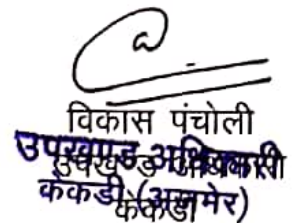 विकास पंचोली
उपखण्ड अधिकारी
उपखण्ड अधिकारी
केकडी (अजमेर)
केकडी